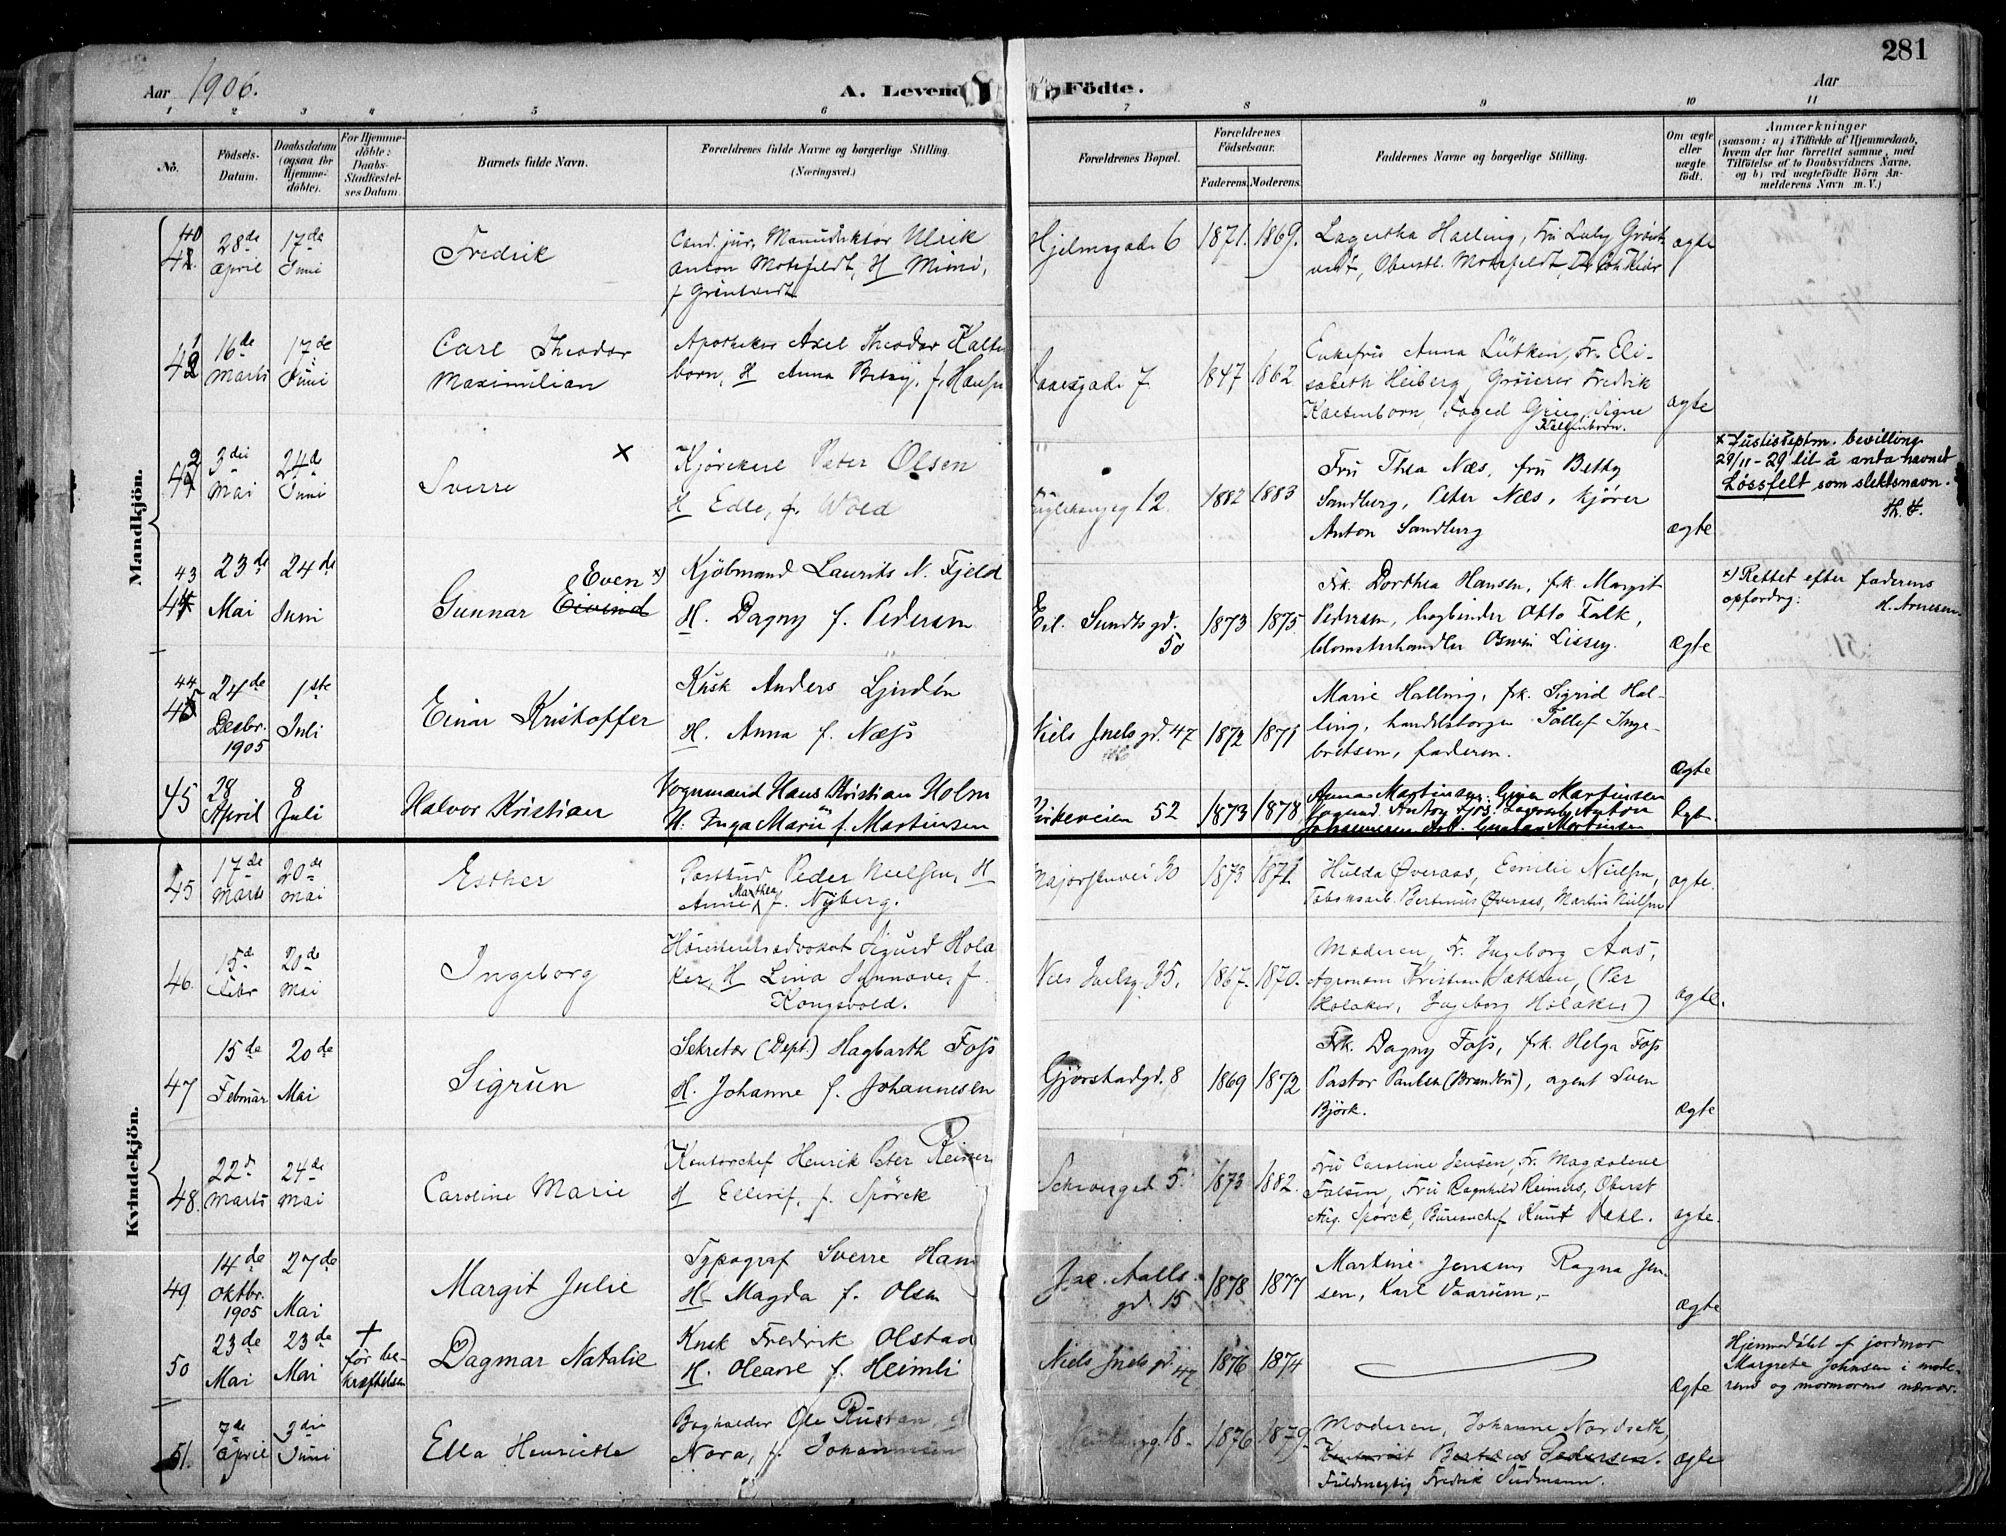 281
Aar 1906.
A. Levende Födte.
Aar
1 2 3 4 5 6 7 8 9 10 11
No.
Födsels-
Datum.
Daabsdatum
(ogsaa for
Hjemme-
döbte).
For Hjemme-
döbte:
Daabs-
Stadfæstel-
ses Datum.
Barnets fulde Navn.
Forældrenes fulde Navne og borgerlige Stilling.
(Næringsvei.)
Forældrenes Bopæl.
Forældrenes
Födselsaar.
Faderens.
Moderens.
Faddernes Navne og borgerlige Stilling.
Om ægte
eller
uægte
födt.
Anmærkninger
(saasom: a) i Tilfælde af Hjemmedaab,
hvem der har forrettet samme, med
Tilföielse af to Daabsvidners Navne,
og b) ved uægtefödte Börn An-
melderens Navn m. V.)
Mandkjön.
40
28de April
17de Juni
Fredrik
Cand. jur., Manuduktør Ulrik
Anton Motzfeldt, H Mimi,
f Grøntvedt
Hjelmsgade 6
1871. 1869.
Lagertha Halling, Fru Luly Grønt-
vedt, Oberstl. Motzfeldt,
ægte
41
16de Marts
17de Juni
Carl Theodor
Maximilian
Apotheker Axel Theodor Kalten
born, H Anna Betsy, f. Hansen
gade 7
1847 1862
Enkefru Anna Lütken, Fr. Eli-
sabeth Heiberg, Grosserer Fredrik
Kaltenborn, Foged Grieg, Signe
Kaltenborn.
ægte
42
3die Mai
24de Juni
Sverre ×
Kjørekarl Peter Olsen
H Edle, f. Wold
12.
1882 1883
Fru Thea Næs, fru Betty
Sandberg, Peter Næs, kjører
Anton Sandberg
ægte
× Justisdeptm. bevilling
29/11 - 29 til å anta navnet
Løssfelt som slektsnavn.
43
23de Mai
24de Juni
Even ×)
Gunnar Eivind
Kjøbmand Laurits N. Fjeld
H. Dagny f. Pedersen
Eil. Sundts gd.
50
1873 1875
Frk. Dorthea Hansen, frk. Margit
Pedersen, bogbinder Otto Falk,
blomsterhandler Osvin Lissey.
Ægte
×) Rettet efter faderens
opfordrg: H. Arnesen.
44
24de Decbr. 1905
1ste Juli
Einar Kristoffer
Kusk Anders Ljindén
H. Anna f. Næss
Niels Juels gd. 47
1872 1871
Marie Halling, frk. Sigrid Hal-
ling, handelsborger Tollef Inge-
bretsen, faderen.
Ægte
45
28 April
8 Juli
Halvor Kristian
Vognmand Hans Kristian Holm
H. Inga Marie f. Martinsen
Kirkeveien 52
1873 1878
Anna Martinsen,
Martinsen
Kvindekjön.
45
17de Marts
20de Mai
Esther
Postbud Peder Nielsen, H
Anne Marthea f. Nyberg.
Majorstuvei 30
1873 1871
Hulda Øveraas, Emilie Nielsen,
Fabriksarb. Bertinus Øveraas, Martin Nielsen
ægte.
46.
15de Febr
20de Mai
Ingeborg
Høiesteretsadvokat Sigurd Hola
ker, H Lina Synnøve, f.
Kongsvold.
Niels Juelsg. 35.
1867. 1870.
Moderen, Fr. Ingeborg Aas,
Agronom Kristian Sækken, (Per
Holaker, Ingeborg Holaker)
ægte.
47
15de Februar
20de Mai
Sigrun
Sekretær (Dept.) Hagbarth Foss
H. Johanne f. Johannesen
Gjørstadgd. 8
1869 1872
Frk. Dagny Foss, frk. Helga Foss
Pastor Paulsen (Brandbu), agent Sven
Bjørk.
Ægte
48.
22de Marts
24de Mai
Caroline Marie
Kontorchef Henrik Peter Reimers
H Ellisif, f. Spörck
Schivesgad. 5.
1873 1882.
Fru Caroline Jensen, Fr. Magdalene
Falsen, Fru Ragnhild Reimers, Oberst
Aug. Spörck, Bureauchef Knut Dahl.
ægte.
49
14de Oktbr. 1905
27de Mai
Margit Julie
Typograf Sverre Ham
H. Magda f. Olsen
Jac. Aalls
gd. 15
1878 1877
Martine Jensen, Ragna Jen-
sen, Karl Vaarum,-
Ægte
50
23de Mai
23de Mai
+
før be-
kræftelsen
Dagmar Natalie
Kusk Fredrik Olstad
H. Oleave f. Heimli
Niels Juels gd. 47
1876 1874
Ægte
Hjemmedøbt af jordmor
Margrete Johnsen i mode-
rens og mormorens nærvær.
51.
7de April
3die Juni
Ella Henriette
Bogholder Ole Rustan, H
Nora, f. Johannesen
18.
1876 1879.
Moderen, Johanne Nordseth,
Kontorist Bertæus Pedersen.
Fuldmægtig Fredrik Sudmann.
ægte